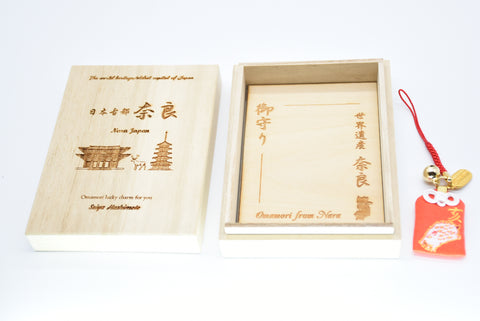 The world heritage/oldest capital of Japan
日本古都 奈良
Nara Japan
Omamori lucky charm for you
Saiyo Hashimoto
御守り
世界遺産 奈良
Omamori from Nara
亥